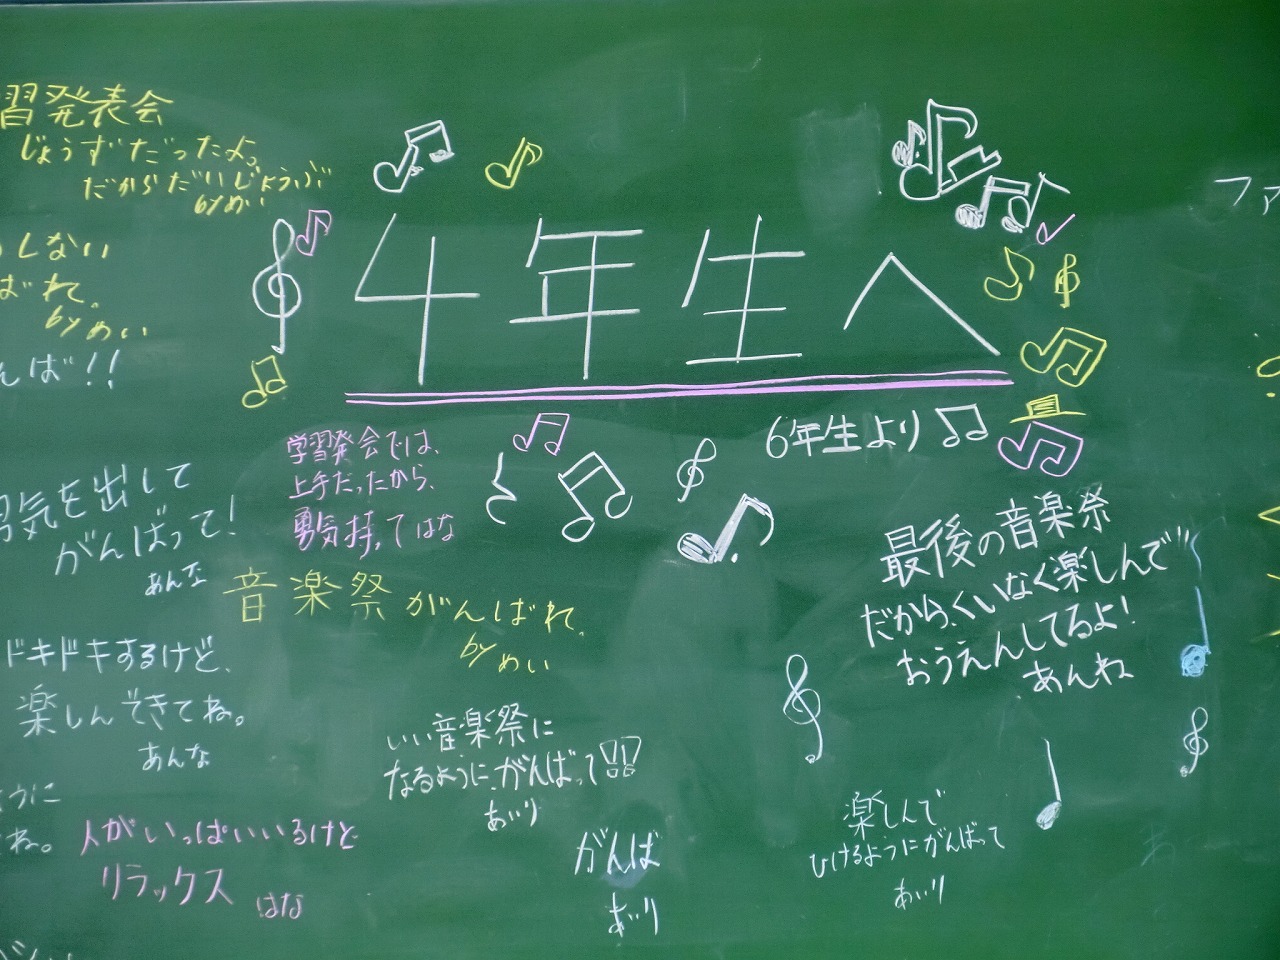 習発表会
じょうずだったよ。
だからだいじょうぶ
byめい
しない
ばれ。
byめい
んば!!
4年生へ
6年生より
学習発会では、
上手だったから、
勇気持ってはな
勇気を出して
がんばって!
あんな
音楽祭がんばれ、
byめい
ドキドキするけど、
楽しんできてね。
あんな
ように
ね。
人がいっぱいいるけど
リラックス はな
いい音楽祭に
なるように、がんばって!!
あいり
がんば
あいり
最後の音楽祭
だから、くいなく楽しんで
おうえんしてるよ!
あんね
楽しんで
ひけるようにがんばって
あいり
ファ